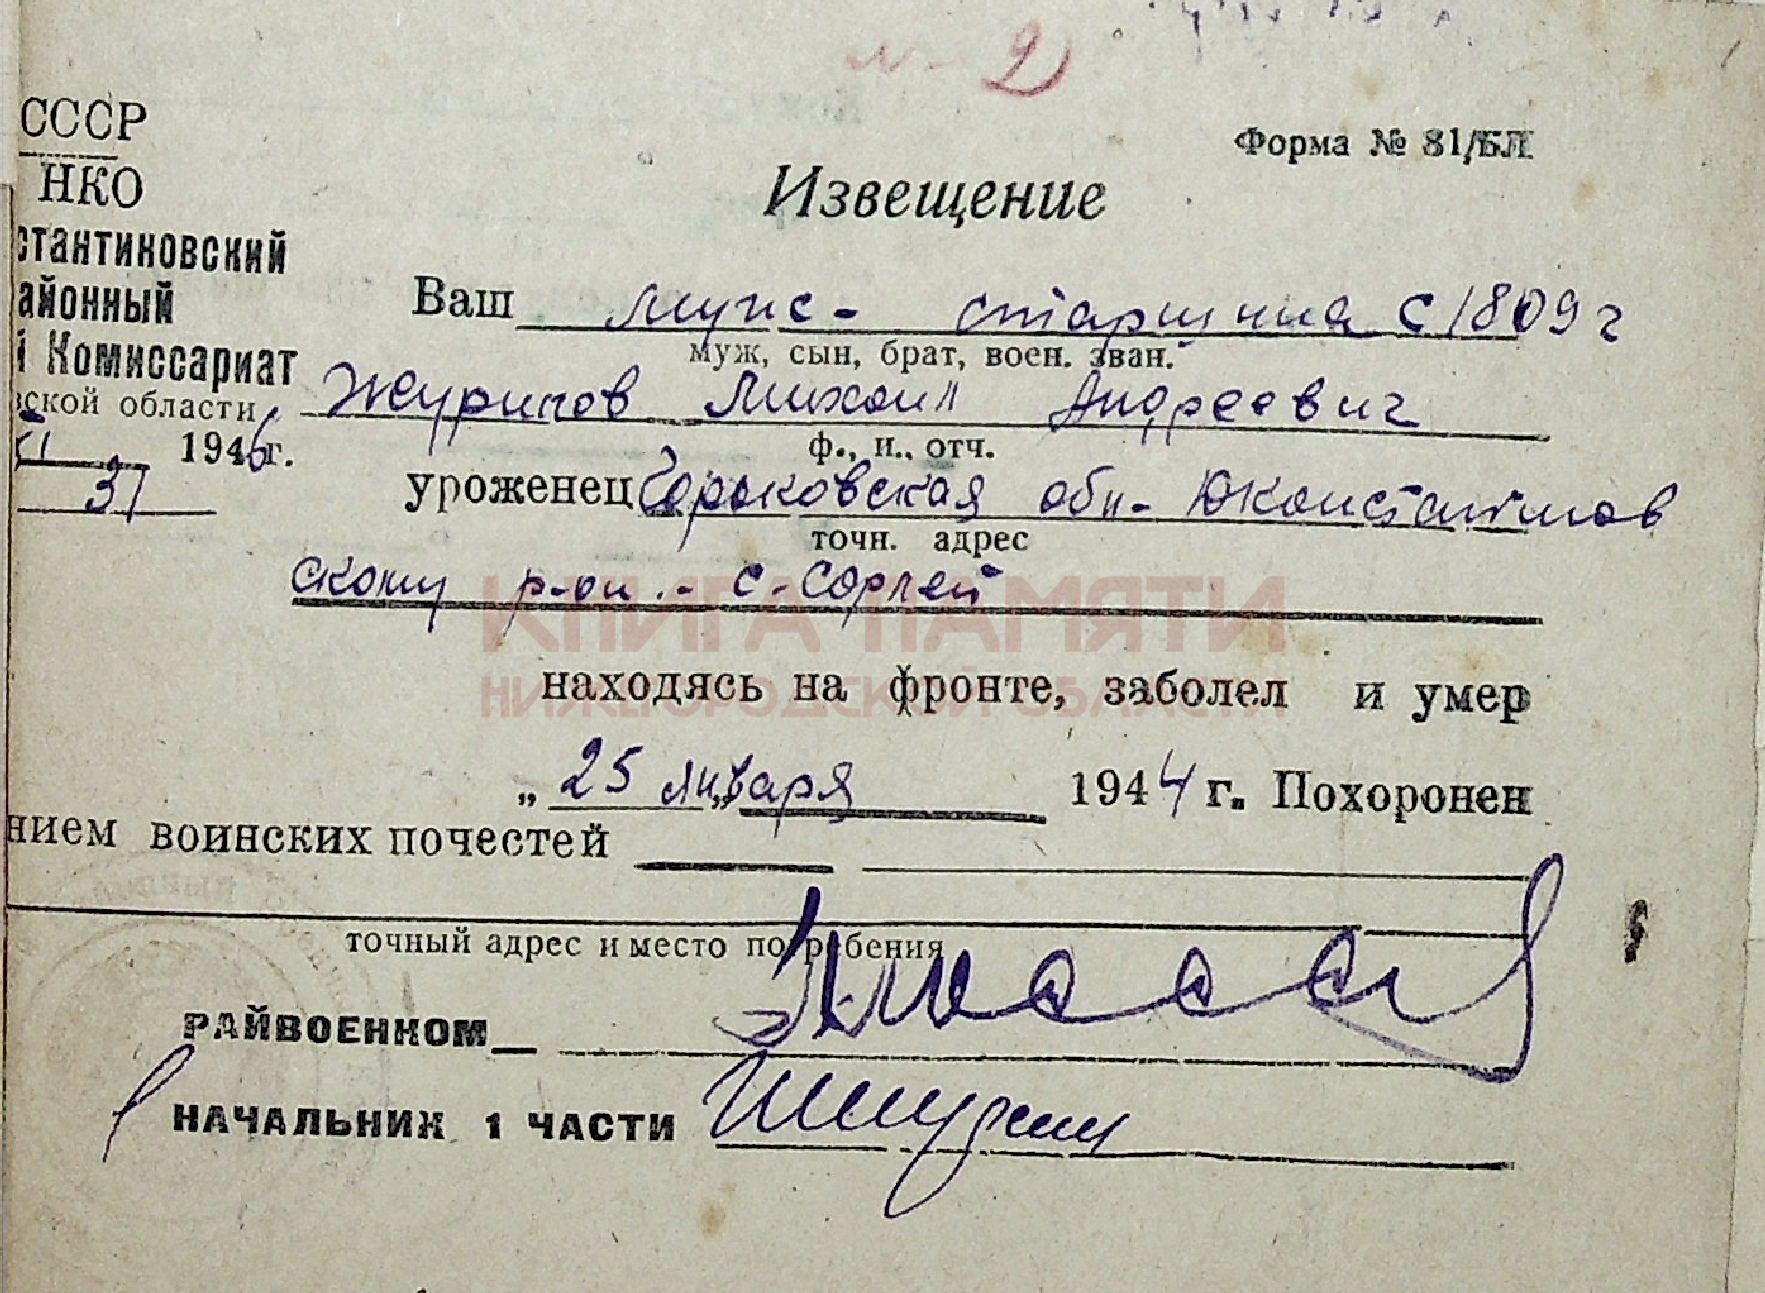 № 2
СССР
Форма № 81/БЛ
НКО
Извещение
стантиновский
айонный
Ваш муж - старшина с 1809 г
й Комиссариат
муж, сын, брат, воен. зван.
вской области
Журипов Михаил Андреевич
1946 г.
ф., и., отч.
37
уроженец Горьковская обл- Юконстантинов
точн. адрес
скому р-он.- с-Сорлей
КНИГА ПАМЯТИ
НИЖЕГОРОДСКОЙ ОБЛАСТИ
находясь на фронте, заболел и умер
„ 25 января 1944 г. Похоронен
нием воинских почестей
точный адрес и место погребения
РАЙВОЕНКОМ
НАЧАЛЬНИК 1 ЧАСТИ